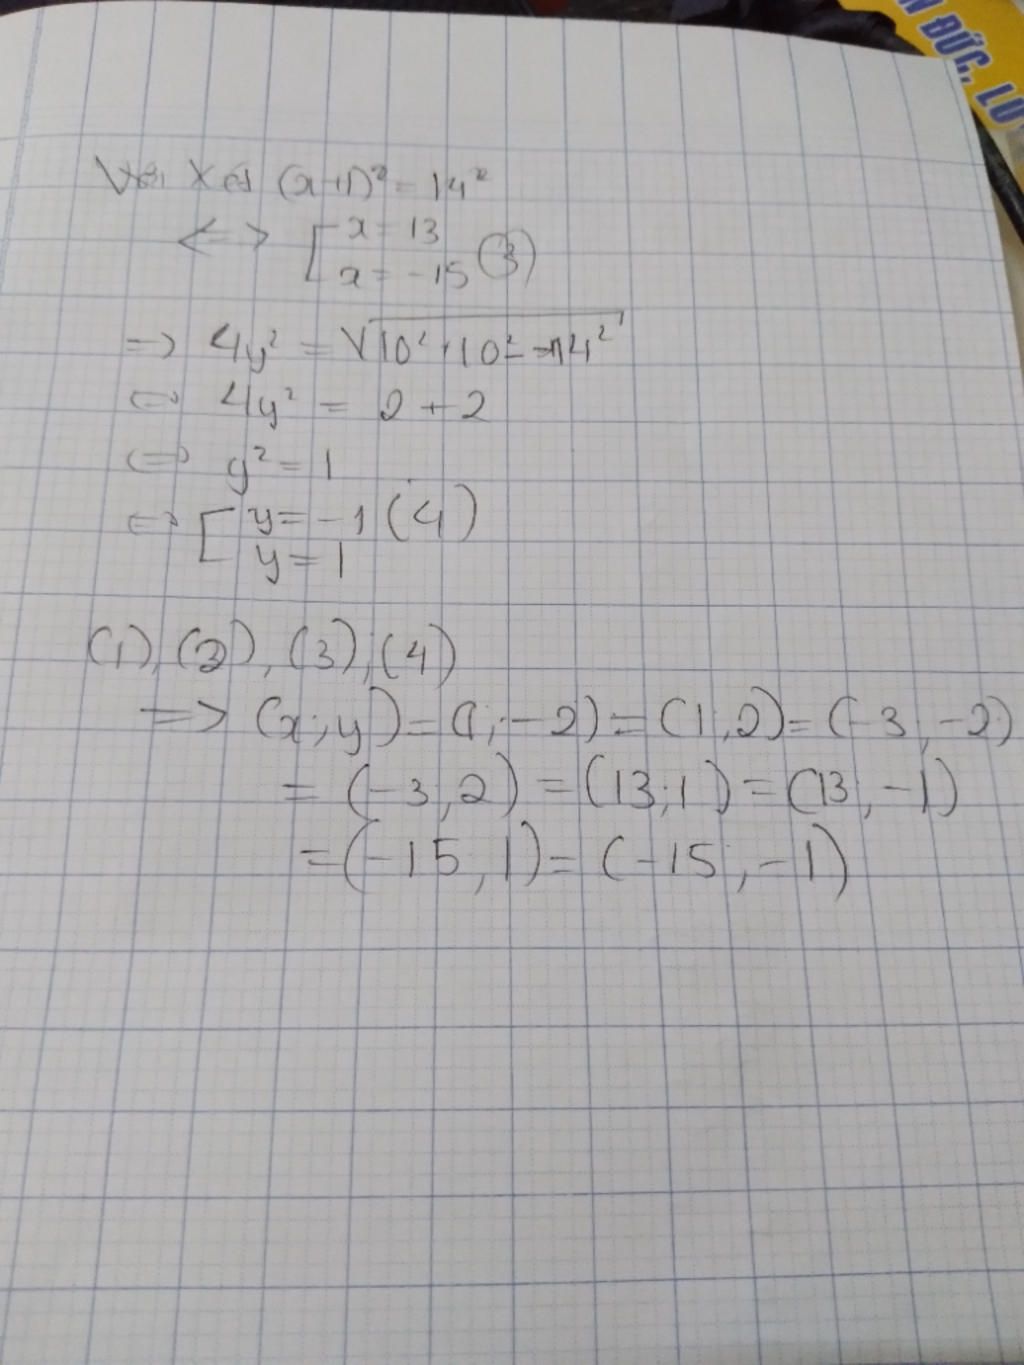 ĐỨC, LU
Với Xét (x+1)² = 14²
<=> [ x = 13
x = -15 (3)
=> 4y² = √10²+10²-14²
<=> 4y² = 2+2
<=> y² = 1
<=> [ y = -1 (4)
y = 1
(1), (2), (3), (4)
=> (x;y) = (1;-2) = (1;2) = (-3,-2)
= (-3,2) = (13;1) = (13,-1)
= (-15,1) = (-15,-1)